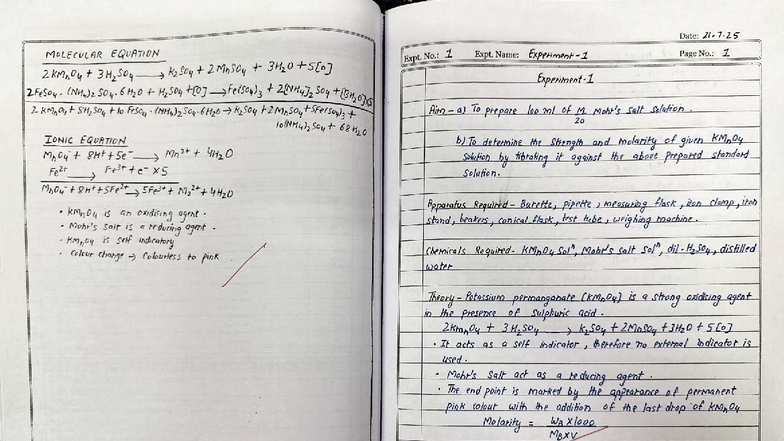 MOLECULAR EQUATION
2KMnO4 + 3H2SO4 → K2SO4 + 2MnSO4 + 3H2O + 5[O]
2FeSO4·(NH4)2SO4·6H2O + H2SO4 + [O] → Fe(SO4)3 + 2(NH4)2SO4 + (13H2O)×5
2KMnO4 + 8H2SO4 + 10FeSO4·(NH4)2SO4·6H2O → K2SO4 + 2MnSO4 + 5Fe(SO4)3 +
10(NH4)2SO4 + 68H2O
IONIC EQUATION
MnO4⁻ + 8H⁺ + 5e⁻ → Mn²⁺ + 4H2O
Fe²⁺ → Fe³⁺ + e⁻ ×5
MnO4⁻ + 8H⁺ + 5Fe²⁺ → 5Fe³⁺ + Mn²⁺ + 4H2O
• KMnO4 is an oxidising agent.
• Mohr's salt is a reducing agent.
• KMnO4 is self indicatory
• Colour change → Colourless to pink
Date: 21.7.25
Expt. No.: 1 Expt. Name: Experiment-1 Page No.: 1
Experiment-1
Aim - a) To prepare 100 ml of M/20 Mohr's Salt Solution.
b) To determine the strength and molarity of given KMnO4
solution by titrating it against the above prepared standard
solution.
Apparatus Required - Burette, pipette, measuring flask, iron clamp, iron
stand, beakers, conical flask, test tube, weighing machine.
Chemicals Required - KMnO4 Solⁿ, Mohr's salt Solⁿ, dil·H2SO4, distilled
water
Theory - Potassium permanganate (KMnO4) is a strong oxidising agent
in the presence of sulphuric acid.
2KMnO4 + 3H2SO4 → K2SO4 + 2MnSO4 + 3H2O + 5[O]
• It acts as a self indicator, therefore no external indicator is
used.
• Mohr's Salt act as a reducing agent.
• The end point is marked by the appearance of permanent
pink colour with the addition of the last drop of KMnO4
Molarity = WB×1000
MB×V